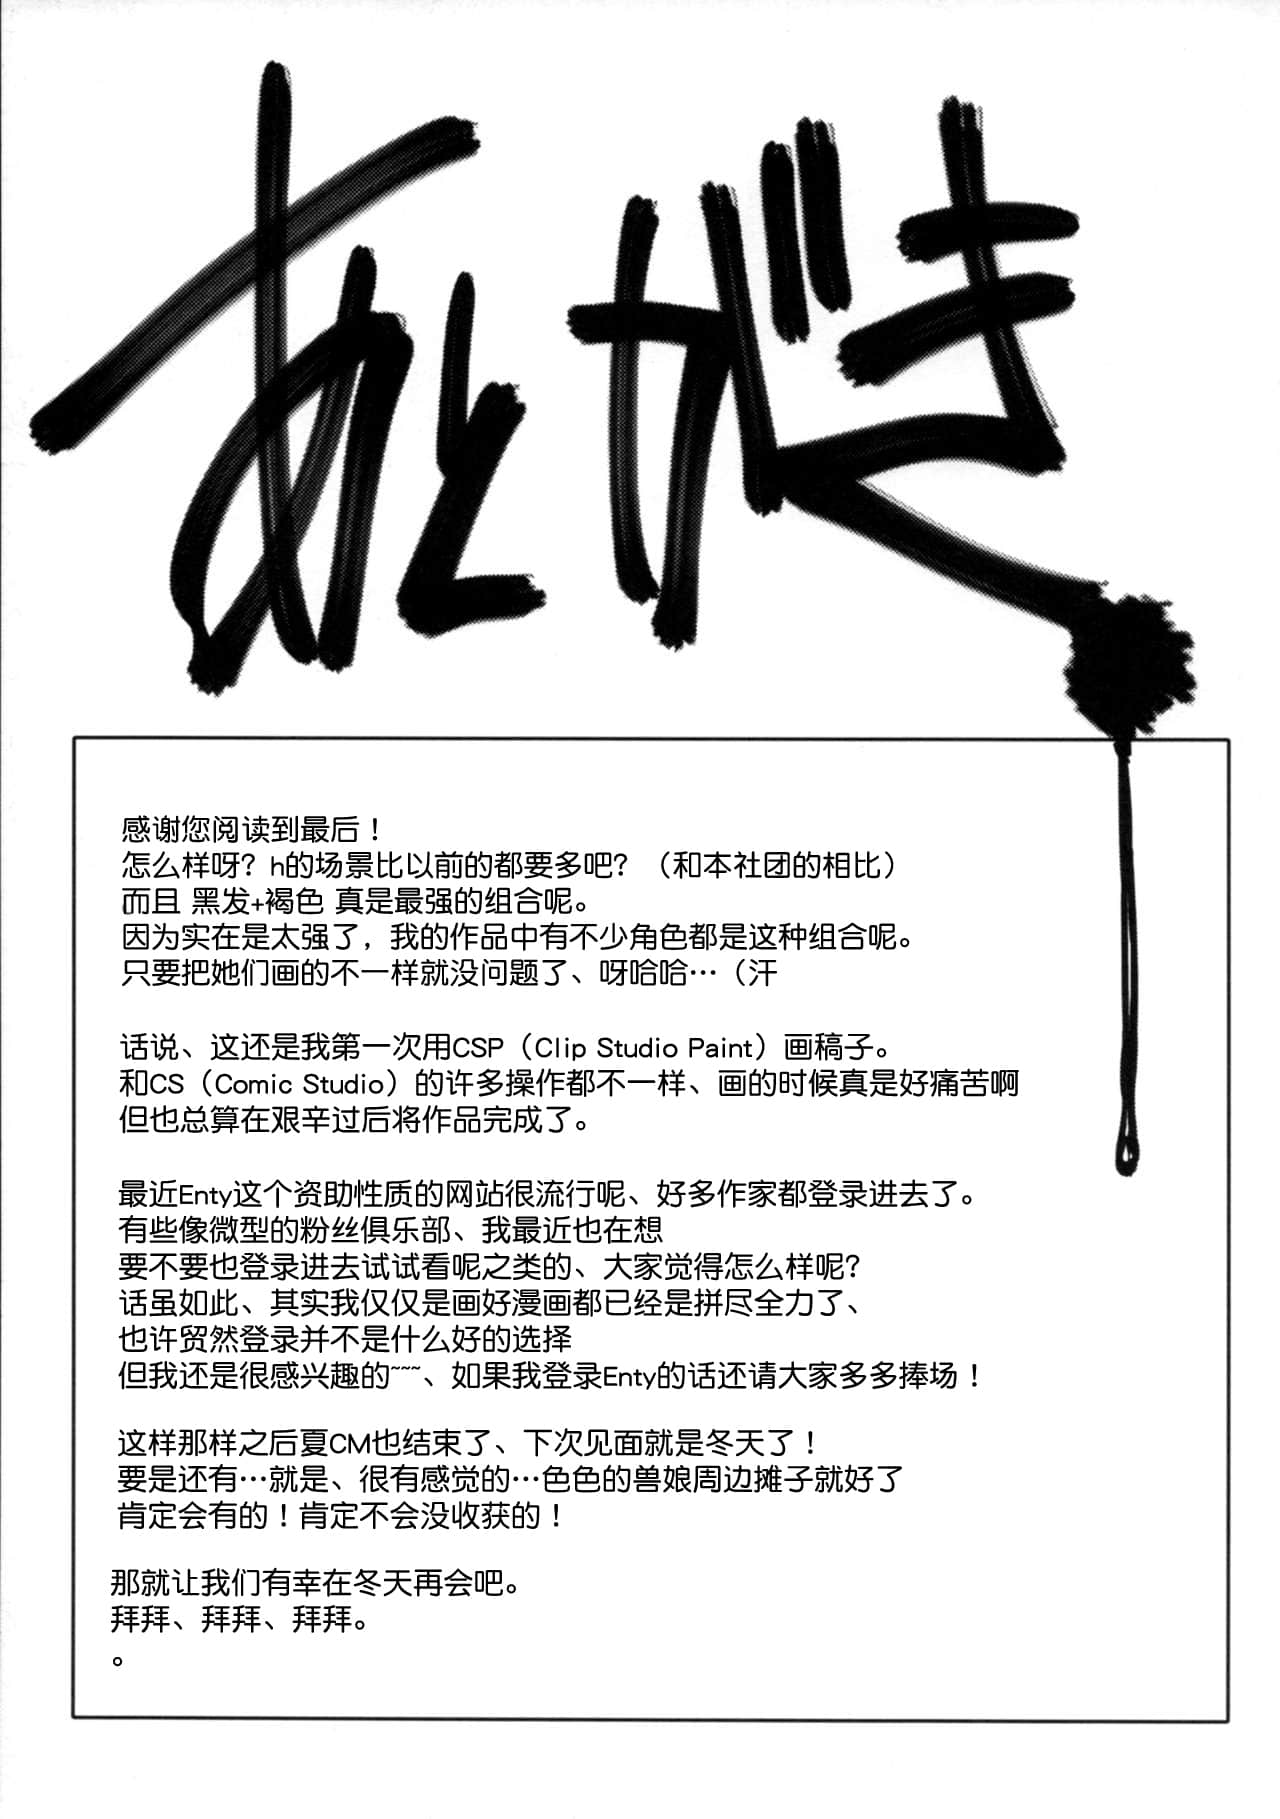 あとがき
感谢您阅读到最后！
怎么样呀？h的场景比以前的都要多吧？（和本社团的相比）
而且 黑发+褐色 真是最强的组合呢。
因为实在是太强了，我的作品中有不少角色都是这种组合呢。
只要把她们画的不一样就没问题了、呀哈哈…（汗
话说、这还是我第一次用CSP（Clip Studio Paint）画稿子。
和CS（Comic Studio）的许多操作都不一样、画的时候真是好痛苦啊
但也总算在艰辛过后将作品完成了。
最近Enty这个资助性质的网站很流行呢、好多作家都登录进去了。
有些像微型的粉丝俱乐部、我最近也在想
要不要也登录进去试试看呢之类的、大家觉得怎么样呢？
话虽如此、其实我仅仅是画好漫画都已经是拼尽全力了、
也许贸然登录并不是什么好的选择
但我还是很感兴趣的~~~、如果我登录Enty的话还请大家多多捧场！
这样那样之后夏CM也结束了、下次见面就是冬天了！
要是还有…就是、很有感觉的…色色的兽娘周边摊子就好了
肯定会有的！肯定不会没收获的！
那就让我们有幸在冬天再会吧。
拜拜、拜拜、拜拜。
。